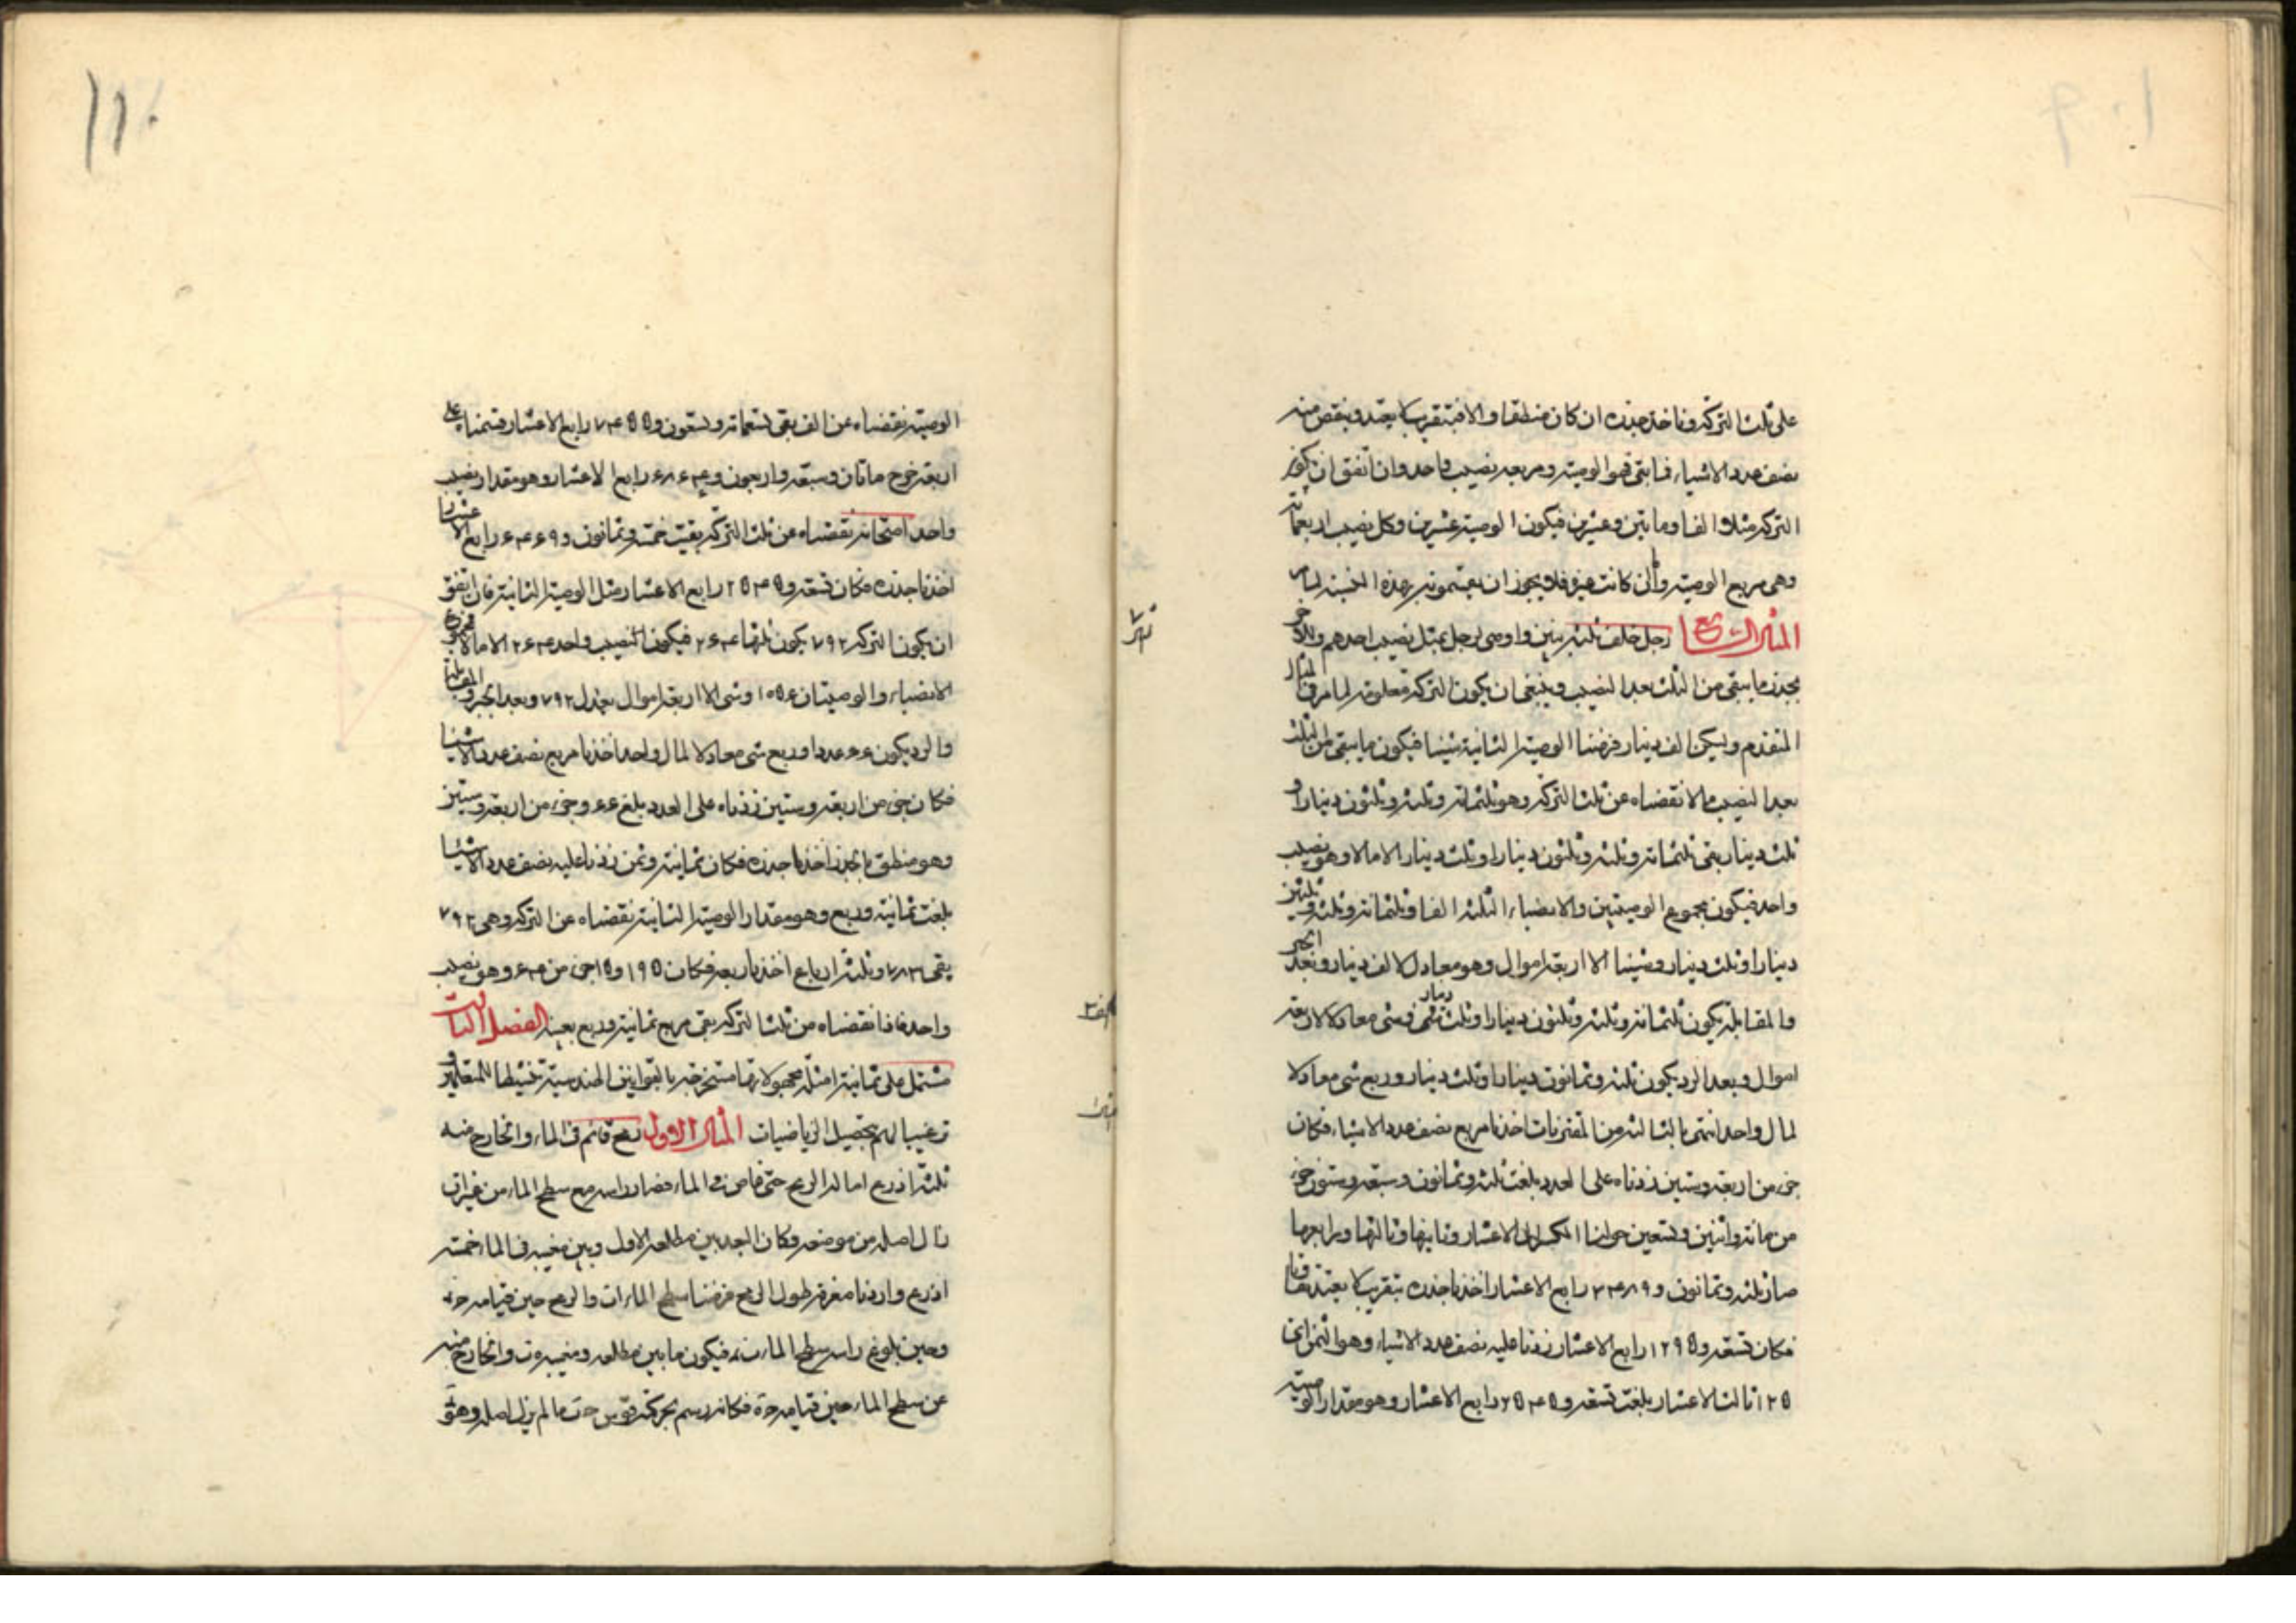 ١٠٩
على ثلث التركة وناخذ جذره ان كان منطقا والا فبتقريب يعتد وينقص منه
نصف عدد الاشياء فما بقى فهو الوصية ومربعه نصيب واحد وان اتفق ان يكون
التركة مثلا الفا ومايتين وعشرين فيكون الوصية عشرين وكل نصيب اربعمائة
وهى مربع الوصية وان كانت غيره فلا يجوز ان
المثال السابع رجل خلف ثلثة بنين واوصى لرجل بمثل نصيب احدهم ولآخر
بجذر ما يبقى من الثلث بعد النصيب وينبغى ان يكون التركة معلومة لما مر فى المثال
المتقدم وليكن الف دينار فرضنا الوصية الثانية شيئا فيكون ما يبقى من الثلث
بعد النصيب مالا نقصناه عن ثلث التركة وهو ثلثمائة وثلثة وثلثون دينارا و
ثلث دينار بقى ثلثمائة وثلثة وثلثون دينارا وثلث دينار الا مالا وهو نصيب
واحد فيكون مجموع الوصيتين والانصباء الثلثة الفا وثلثمائة وثلثة وثلثين
دينارا وثلث دينار وشيئا الا اربعة اموال وهو معادل لالف دينار وبعد الجبر
والمقابلة يكون ثلثمائة وثلثة وثلثون دينارا وثلث دينار وشئ معادلا لاربعة
اموال وبعد الرد يكون ثلثة وثمانون دينارا وثلث دينار وربع شئ معادلا
لمال واحد انتهى بالثالثة من المقترنات اخذنا مربع نصف عدد الاشياء فكان
جزء من اربعة وستين زدناه على العدد بلغت ثلثة وثمانون وسبعة وستون جزء
من مائة واثنين وتسعين حولنا الكسر الى الاعشار وثانيها وثالثها ورابعها
صار ثلثة وثمانون و ٣٤٨٩ رابع الاعشار اخذنا جذره بتقريب يعتد به
فكان تسعة و ١٢٩٥ رابع الاعشار زدنا عليه نصف عدد الاشياء وهو الثمن اى
١٢٥ ثالث الاعشار بلغت تسعة و ٢٥٤٥ رابع الاعشار وهو مقدار الوصية
١١٠
الوصية نقصناه عن الف بقى تسعمائة وتسعون و ٧٤٥٥ رابع الاعشار قسمناه على
اربعة خرج مائتان وسبعة واربعون و ٦٨٦٤ رابع الاعشار وهو مقدار نصيب
واحد امتحانه نقصناه عن ثلث التركة بقيت خمسة وثمانون و ٦٤٦٩ رابع الاعشار
اخذنا جذره فكان تسعة و ٢٥٤٥ رابع الاعشار مثل الوصية الثانية فان اتفق
ان يكون التركة ٧٩٢ يكون ثلثها ٢٦٤ فيكون النصيب واحد ٢٦٤ الا مالا فمجموع
الانصباء والوصيتان ١٠٥٦ وشئ الا اربعة اموال يعدل ٧٩٢ وبعد الجبر والمقابلة
والرد يكون ٦٦ عددا وربع شئ معادلا لمال واحد اخذنا مربع نصف عدد الاشياء
فكان جزء من اربعة وستين زدناه على العدد بلغ ٦٦ وجزء من اربعة وستين
وهو منطق بالجذر اخذنا جذره فكان ثمانية وثمن زدنا عليه نصف عدد الاشياء
بلغت ثمانية وربع وهو مقدار الوصية الثانية نقصناه عن التركة وهى ٧٩٢
بقى ٧٨٣ وثلثة ارباع اخذنا ربعه فكان ١٩٥ و ١٥ جزء من ١٦ وهو نصيب
واحد فاذا نقصناه من ثلث التركة بقى مربع ثمانية وربع بعينه الفصل الثالث
مشتمل على ثمانية امثلة مجهولاتها مستخرجة بالقوانين الهندسية تنشيطا للمتعلمين و
ترغيبا لهم بتحصيل الرياضيات المثال الاول رمح قائم فى الماء والخارج منه
ثلثة اذرع امالته الريح حتى غاص فى الماء فصار راسه مع سطح الماء من غير ان
زال اصله من موضعه وكان البعد بين مطلعه الاول وبين مغيبه فى الماء خمسة
اذرع واردنا معرفة طول الرمح فرضنا سطح الماء ا ت والرمح حين قيامه
وحين بلوغ راسه سطح الماء فيكون ما بين مطلعه ومغيبه والخارج منه
عن سطح الماء حين قيامه فكانه رسم بحركته قوس ما لم يزل اصله وهو